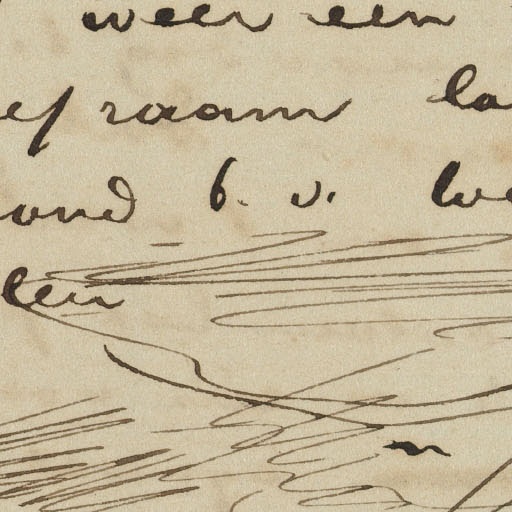 weer een
raam la
ond b. v.
len